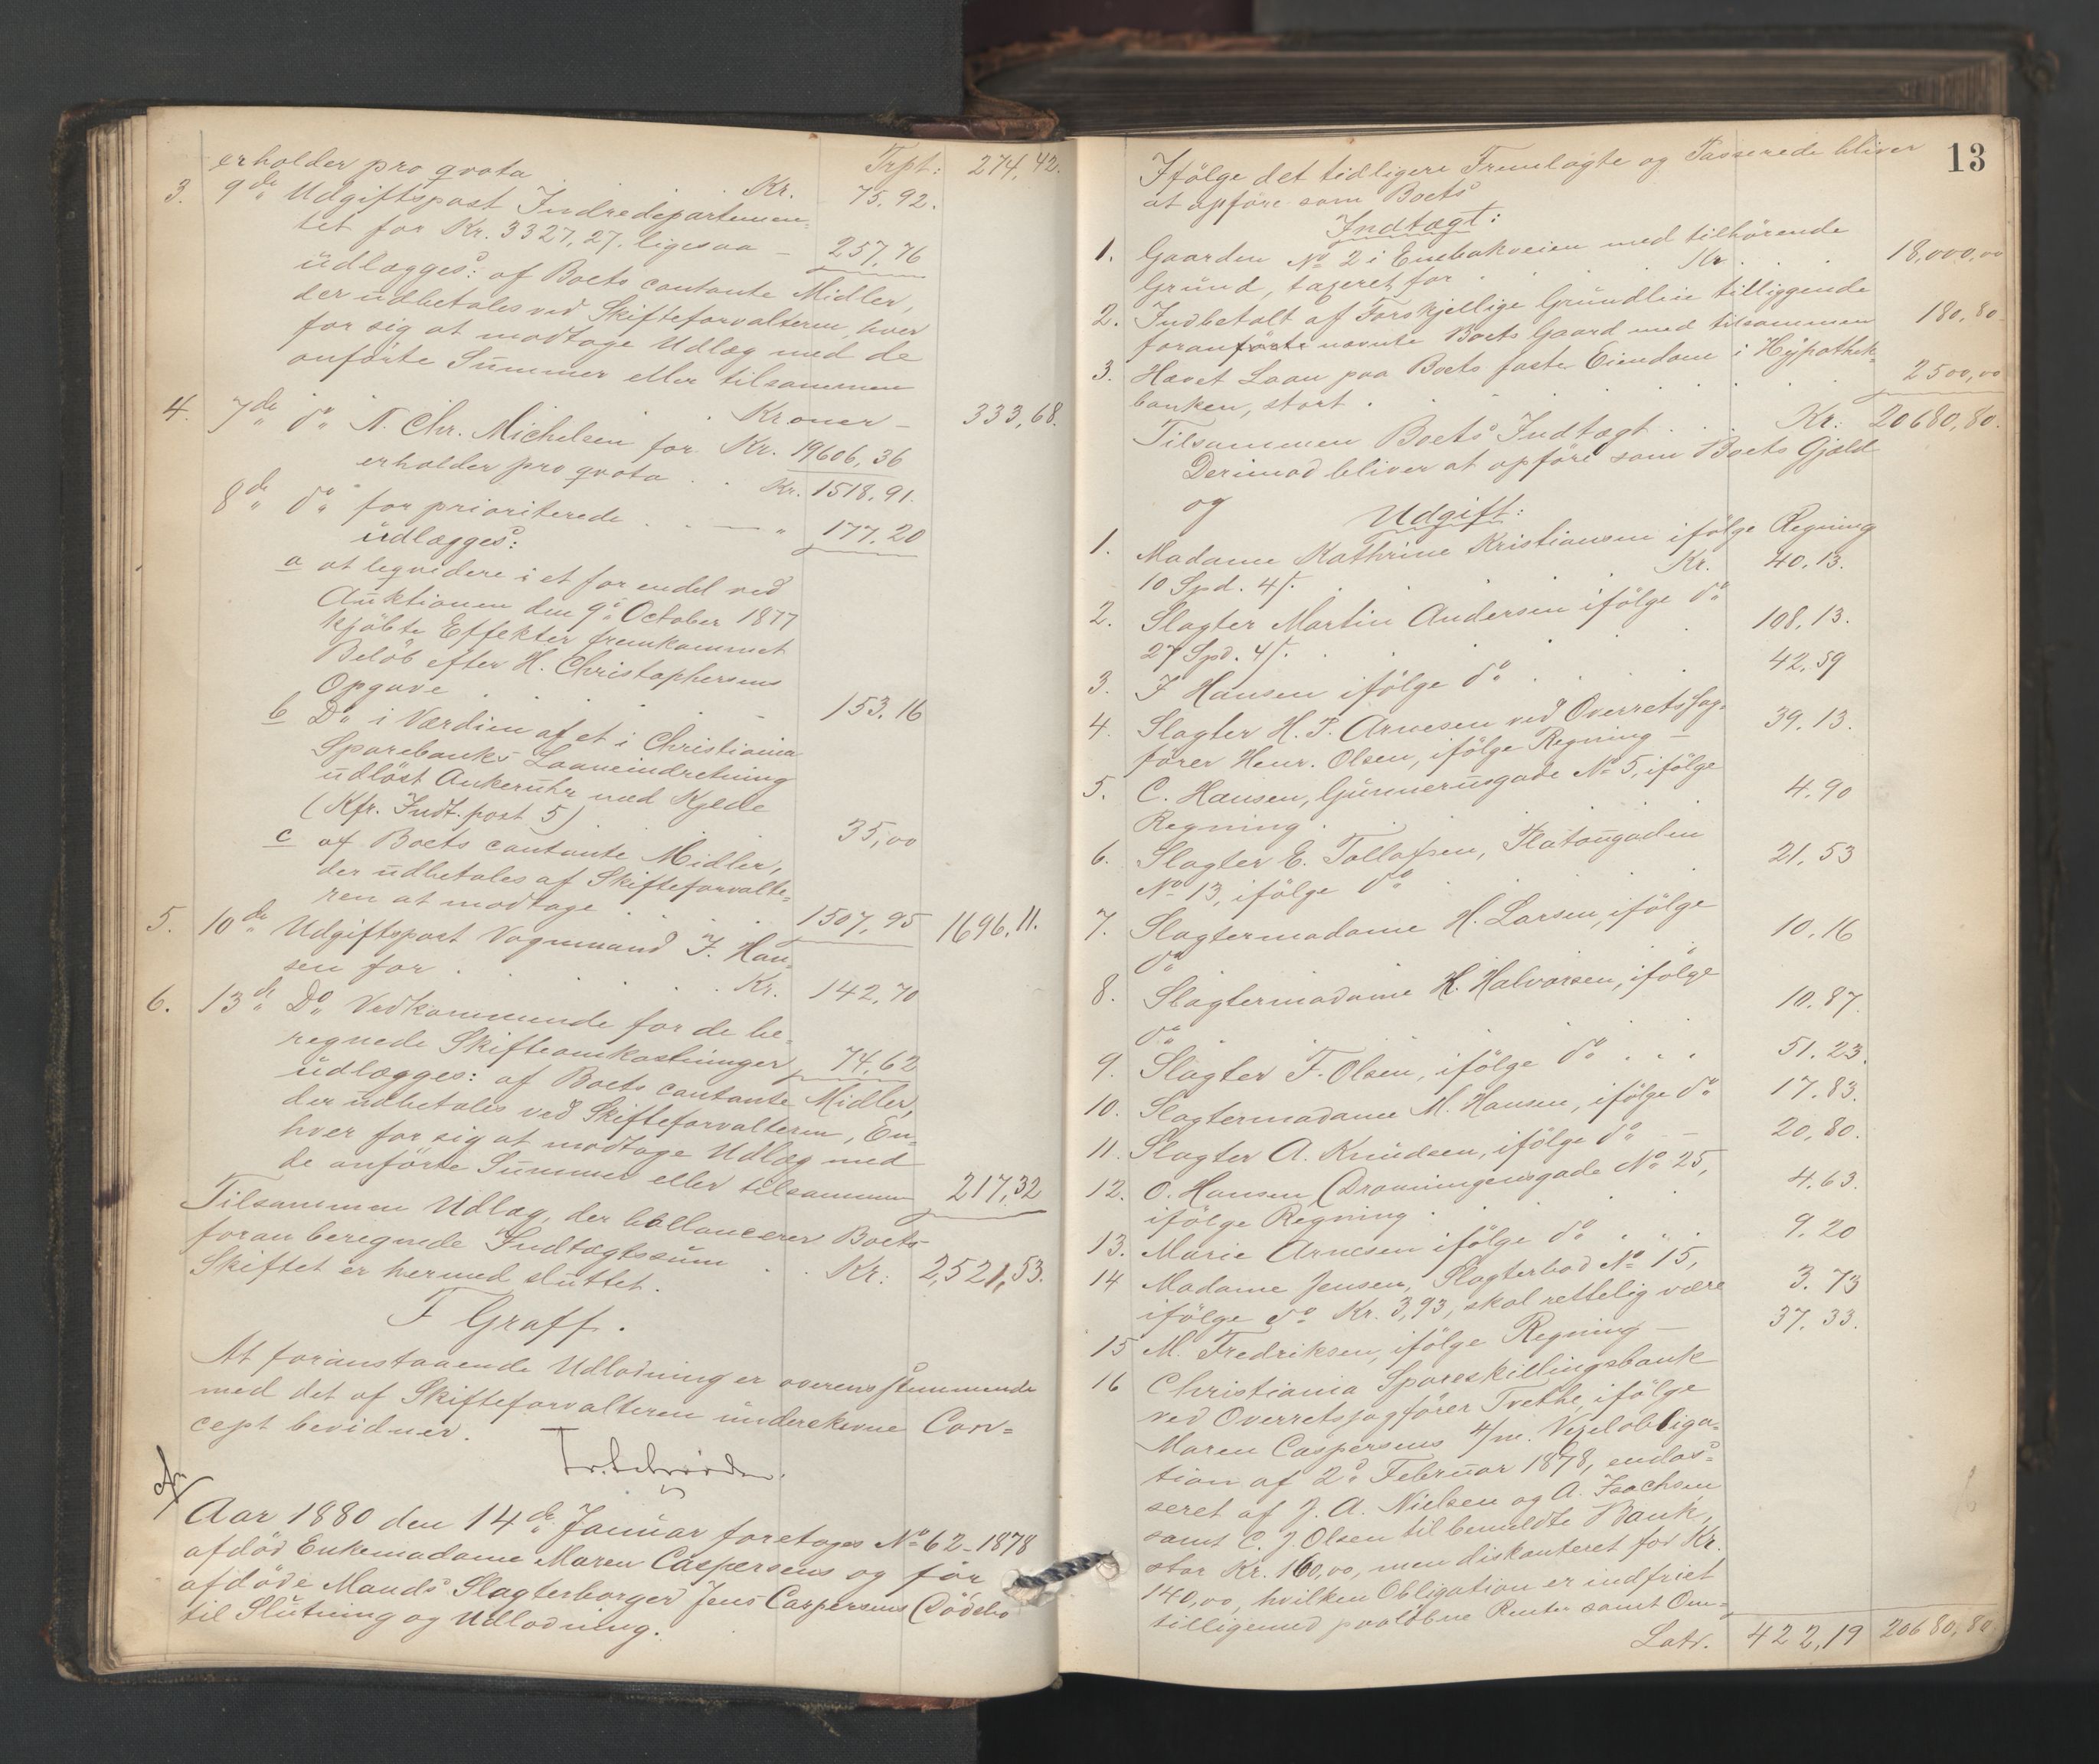 erholder pro qvota . Trpt: 274,42.
3. 9de Udgiftspost Indredepartemen= Kr. 75,92.
tet for Kr. 3327,27. ligesaa – 257,76
udlægges: af Boets contante Midler,
der udbetales ved Skifteforvalteren, hver
for sig at modtage Udlæg med de
anførte Summer eller tilsammen
Kroner – 333,68.
4. 7de do N. Chr. Michelsen for Kr. 19606,36
erholder pro qvota . . Kr. 1518,91.
8de do for prioriterede . . — " 177,20
udlægges:
a at leqvidere i et for endel ved
Auktionen den 9de October 1877
kjøbte Effekter fremkommet
Beløb efter H. Christophersens
Opgave . . . – 153,16
b Do i Værdien af et i Christiania
Sparebanks Laaneindretning
udløst Ankeruhr med Kjede
(Kfr. Indt. post 5) . . 35,00
c af Boets contante Midler,
der udbetales af Skifteforvalte=
ren at modtage . . . 1507,95 1696,11.
5. 10de Udgiftspost Vognmand J. Han=
sen for . . . . Kr. 142,70
6. 13de Do Vedkommende for de be=
regnede Skifteomkostninger 74,62
udlægges: af Boets contante Midler,
der udbetales ved Skifteforvalteren, En=
hver for sig at modtage Udlæg med
de anførte Summer eller tilsammen 217,32
Tilsammen Udlæg, der ballancerer Boets
foran beregnede Indtægtssum . . Kr: 2,521,53.
Skiftet er hermed sluttet.
F Graff.
At foranstaaende Udlodning er overensstemmende
med det af Skifteforvalteren underskrevne Con=
cept bevidner.
Aar 1880 den 14de Januar foretoges No 62-1878
afdød Enkemadame Maren Caspersens og før
afdøde Mands Slagterborger Jens Caspersens Dødsbo
til Slutning og Udlodning.
13
Ifølge det tidligere Fremlagte og Passerede bliver
at opføre som Boets
Indtægt:
1. Gaarden No 2 i Enebakveien med tilhørende
Grund, taxeret for . Kr . . . 18,000,00
2. Indbetalt af Forskjellige Grundleie tilliggende
foranførte nævnte Boets Gaard med tilsammen 180,80
3. Hævet Laan paa Boets faste Eiendom i Hypothek=
banken, stort . . . . . 2500,00
Tilsammen Boets Indtægt . . . Kr: 20680,80.
Derimod bliver at opføre som Boets Gjæld
og
Udgift:
1. Madame Kathrine Kristiansen ifølge Regning
10 Spd. 4 s. . . . Kr. 40.13.
2. Slagter Martin Andersen ifølge do
27 Spd. 4 s. . . . . 108.13.
3. J Hansen ifølge do . . . 42.59
4. Slagter H. P. Arnesen ved Overretssag=
fører Henr. Olsen, ifølge Regning – 39.13.
5. C. Hansen, Gunnerusgade No 5, ifølge
Regning . . . . 4.90
6. Slagter E. Tollofsen, Platougaden
No 13, ifølge do . . . 21.53
7. Slagtermadame H. Larsen, ifølge
do . . . 10.16
8. Slagtermadame H. Halvorsen, ifølge
do 10.87.
9. Slagter F. Olsen, ifølge do . . . 51.23.
10. Slagtermadame M. Hansen, ifølge do 17.83.
11. Slagter A. Knudsen, ifølge do – 20,80.
12. O. Hansen (Dronningensgade No 25,
ifølge Regning . . . 4.63.
13. Marie Arnesen ifølge do . . . 9.20
14 Madame Jensen, Slagterbod No 15,
ifølge do Kr. 3,93, skal rettelig være 3.73
15 M. Fredriksen, ifølge Regning – 37.33.
16 Christiania Spareskillingsbank
ved Overretssagfører Trethe, ifølge
Maren Caspersens 4/m. Vexelobliga=
tion af 2de Februar 1878, endos=
seret af J. A. Nielsen og A. Isachsen
samt C. J. Olsen til bemeldte Bank,
stor Kr. 160,00, men diskonteret for Kr.
140,00, hvilken Obligation er indfriet
tilligemed paaløbne Renter samt Om=
Latr. 422,19 20680,80